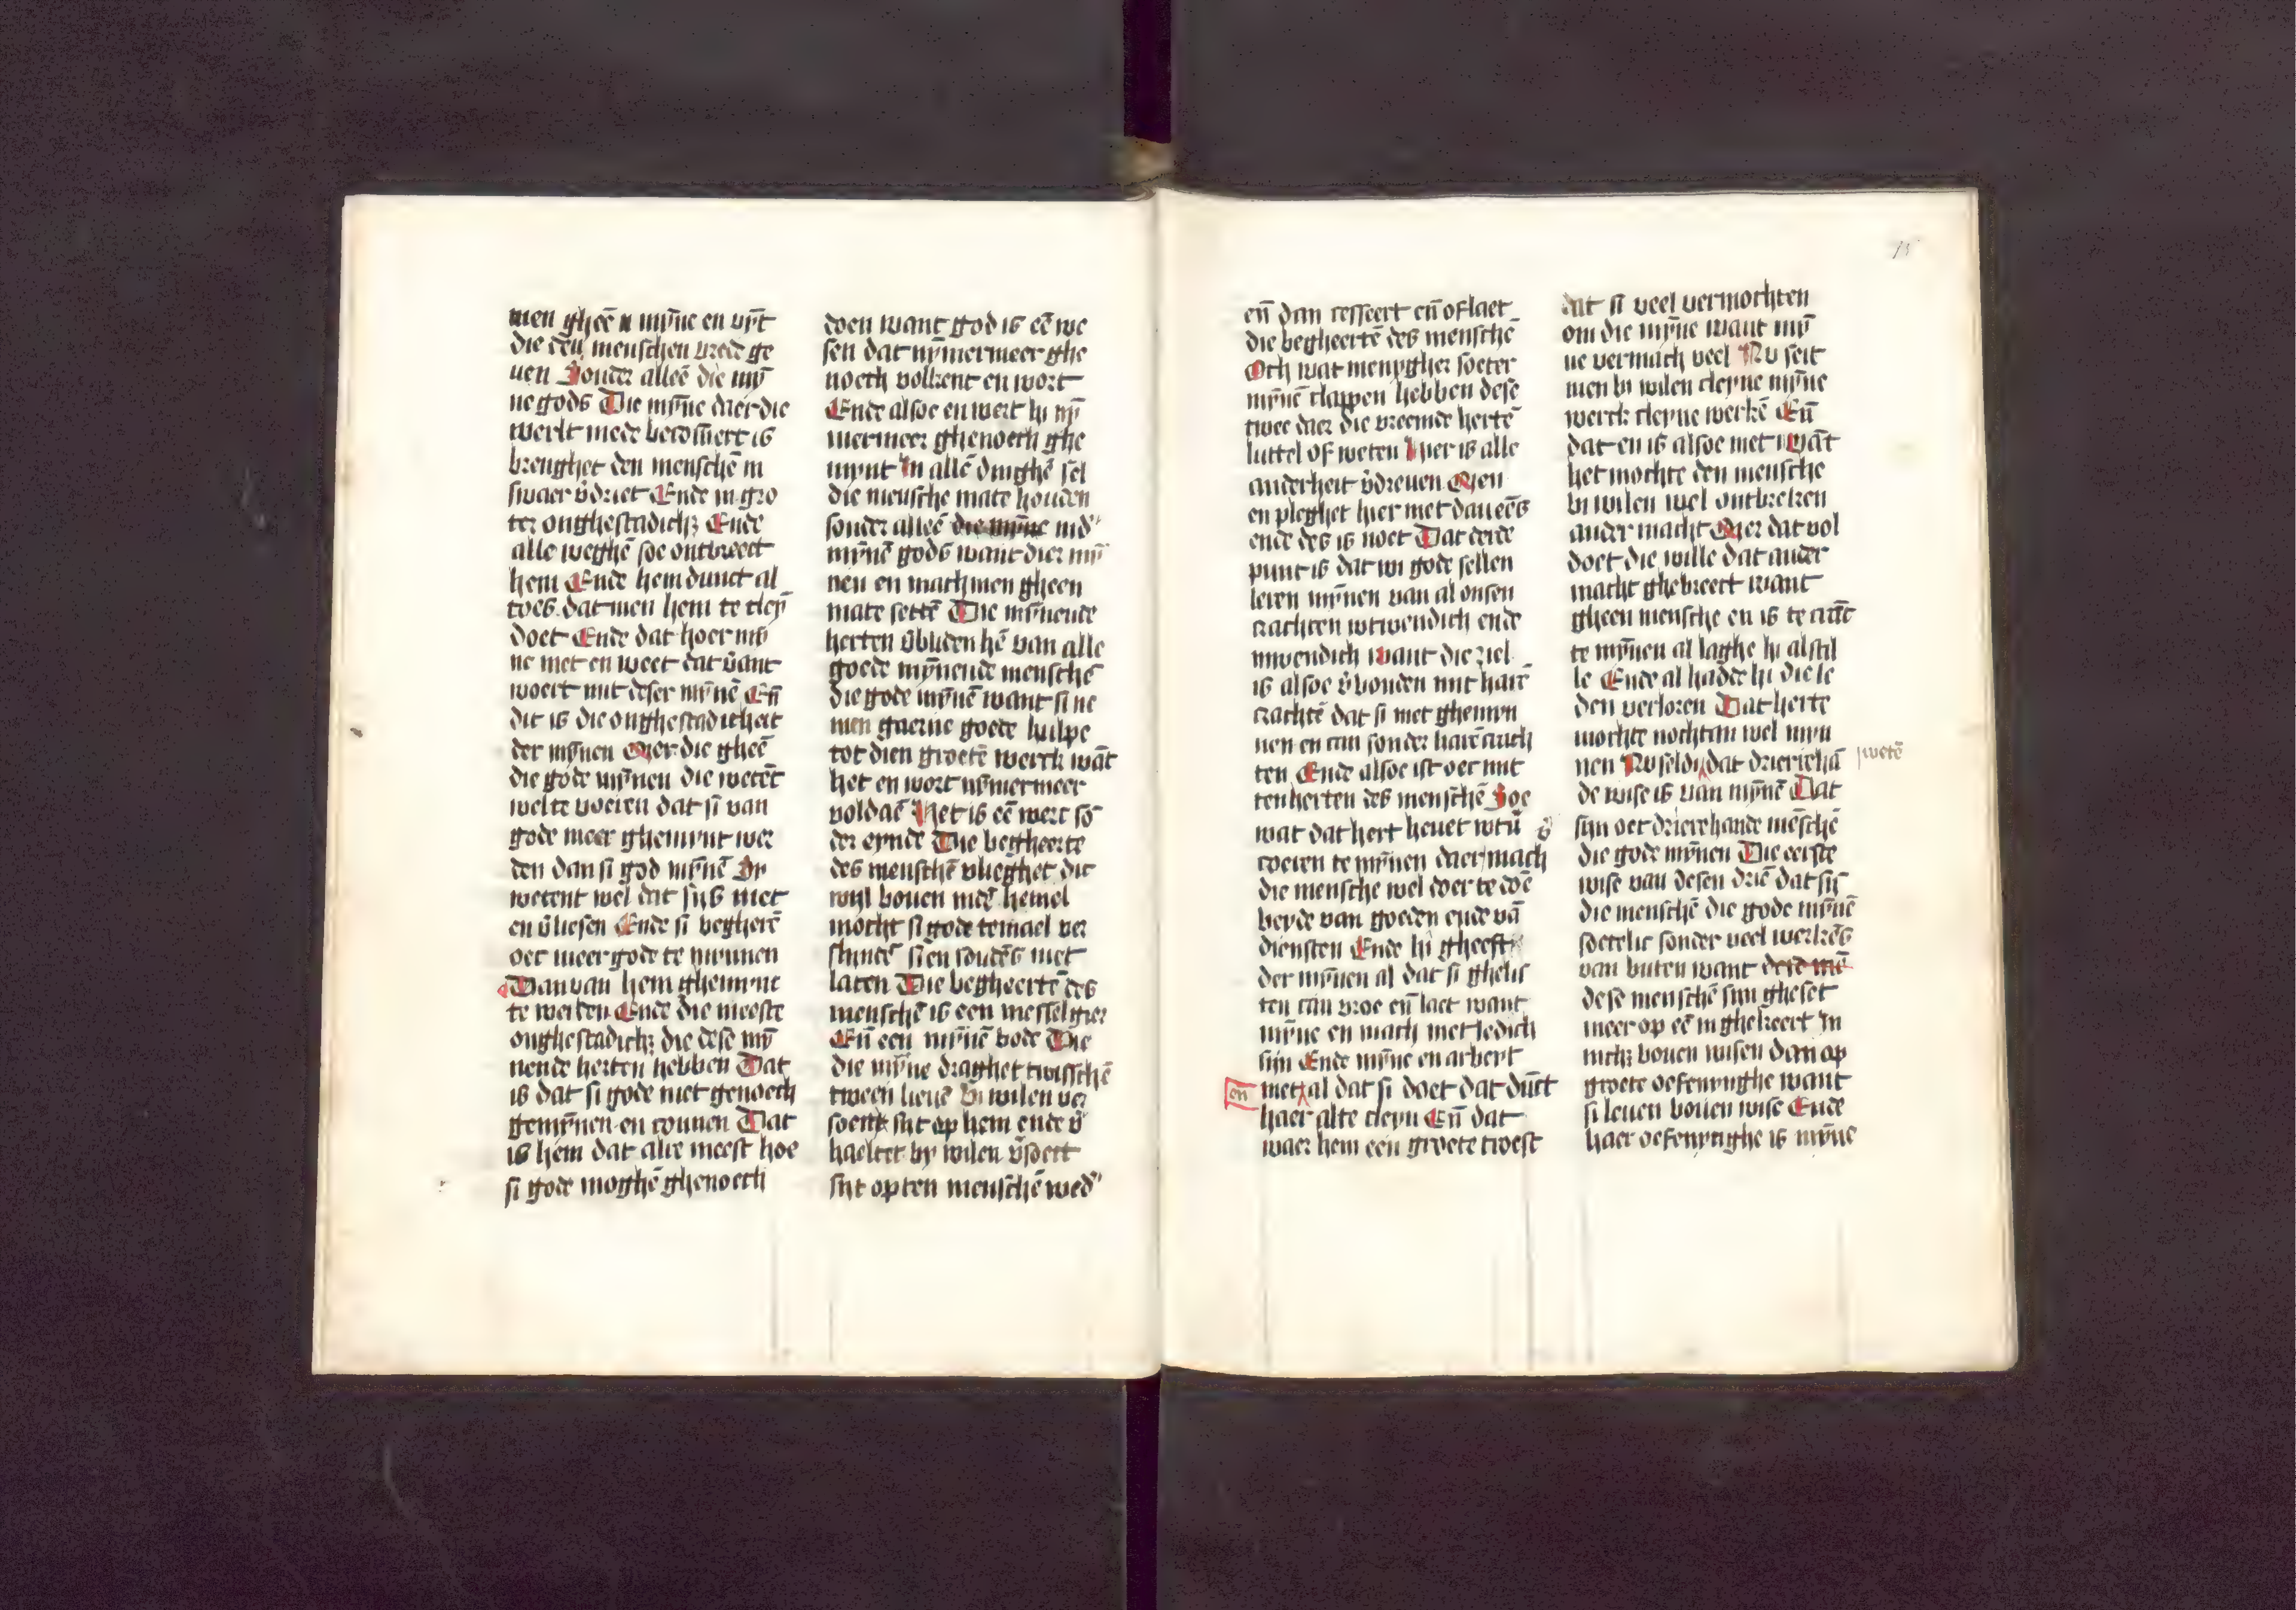 men gheē mȳne en vȳt
die den menschen vrede ge
uen Sonder alleē die mȳ
ne gods Die mȳne daer die
werlt mede becōmert is
brenghet den menschē in
swaer v̄driet Ende in gro
ter onghestadichꝫ Ende
alle weghē soe ontbreect
hem Ende hem dunct al
toes dat men hem te cleȳ
doet Ende dat hoer mȳ
ne niet en weet dat v̄ant
woert mit deser mȳnē En̄
dit is die onghestadicheit
der mȳnen Mer die gheē
die gode mȳnen die wetēt
wel te voeren dat si van
gode meer ghemȳnt wer
den dan si god mȳnē Sy
wetent wel dat sijs niet
en v̄liesen Ende si begherē
oec meer gode te mynnen
Dan van hem ghemynt
te werden Ende die meeste
onghestadichꝫ die dese mȳ
nende herten hebben Dat
is dat si gode niet genoech
gemȳnen en connen Dat
is hem dat alre meest hoe
si gode moghē ghenoech
doen want god is eē we
sen dat nȳmermeer ghe
noech volkent en wort
Ende alsoe en wert hi nȳ
mermeer ghenoech ghe
mynt In allē dinghē sel
die mensche mate houden
sonder alleē die mȳne ind'
mȳnē gods want dier mȳ
nen en mach men gheen
mate settē Die mȳnende
herten v̄bliden hē van alle
goede mȳnende menschē
die gode mȳnē want si ne
men gaerne goede hulpe
tot dien groetē werck wāt
het en wort nȳmermeer
voldaē Het is eē werc sō
der eynde Die begheerte
des menschē vlieghet dic
wyl bouen mēē hemel
mocht si gode temael ver
slinden si en soudēs niet
laten Die begheertē des
menschē is een messelgier
En̄ een mȳnē bode Die
die mȳne draghet twisschē
tween lieuē Bi wilen ver
soent sijt op hem ende v̄
haeltet by wilen v̄soect
sijt op ten menschē wed'
15
en̄ dan cesseert en̄ oflaet
die begheertē des menschē
Och wat menygher soeter
mȳnē clappen hebben dese
twee daer die vreemde hertē
luttel of weten Hier is alle
anderheit v̄dreuen Men
en pleghet hier niet dan eēs
ende des is noet Dat derde
punt is dat wi gode sellen
leren mȳnen van al onsen
crachten wtwendich ende
inwendich want die ziel
is alsoe v̄bonden mit harē
crachtē dat si niet ghemȳn
nen en can sonder harē crach
ten Ende alsoe ist oec mit
ten herten des menschē Soe
wat dat hert heuet wtv̄
coeren te mȳnen daer mach
die mensche wel doer te doē
beyde van goeden ende vā
diensten Ende hi gheeft
der mȳnen al dat si ghelis
ten can vroe en̄ laet want
mȳne en mach niet ledich
sijn Ende mȳne en arbeyt
en̄ niet al dat si doet dat dūct
haer alte cleyn En̄ dat
waer hem een groete troest
dat si veel vermochten
om die mȳne want mȳ
ne vermach veel Nu seit
men bi wilen cleyne mȳne
werck cleyne werkē En̄
dat en is alsoe niet wāt
het mochte den mensche
bi wilen wel ontbreken
ander macht Mer dat vol
doet die wille dat ander
macht ghebreect want
gheen mensche en is te cranc
te mȳnen al laghe hi al stil
le Ende al hadde hi die le
den verloren Dat herte
mochte nochtan wel mȳn
nen Nu seldi dat drierehā
wetē
de wise is van mȳnē Dat
sijn oec drierehande mēschē
die gode mȳnen Die eerste
wise van desen driē dat sijn
die menschē die gode mȳnē
soetelic sonder veel werkēs
van buten want dese mē
dese menschē sijn gheset
meer op eē inghekeert In
nichꝫ bouen wisen dan op
groete oefenynghe want
si leuen bouen wise Ende
haer oefenynghe is mȳne